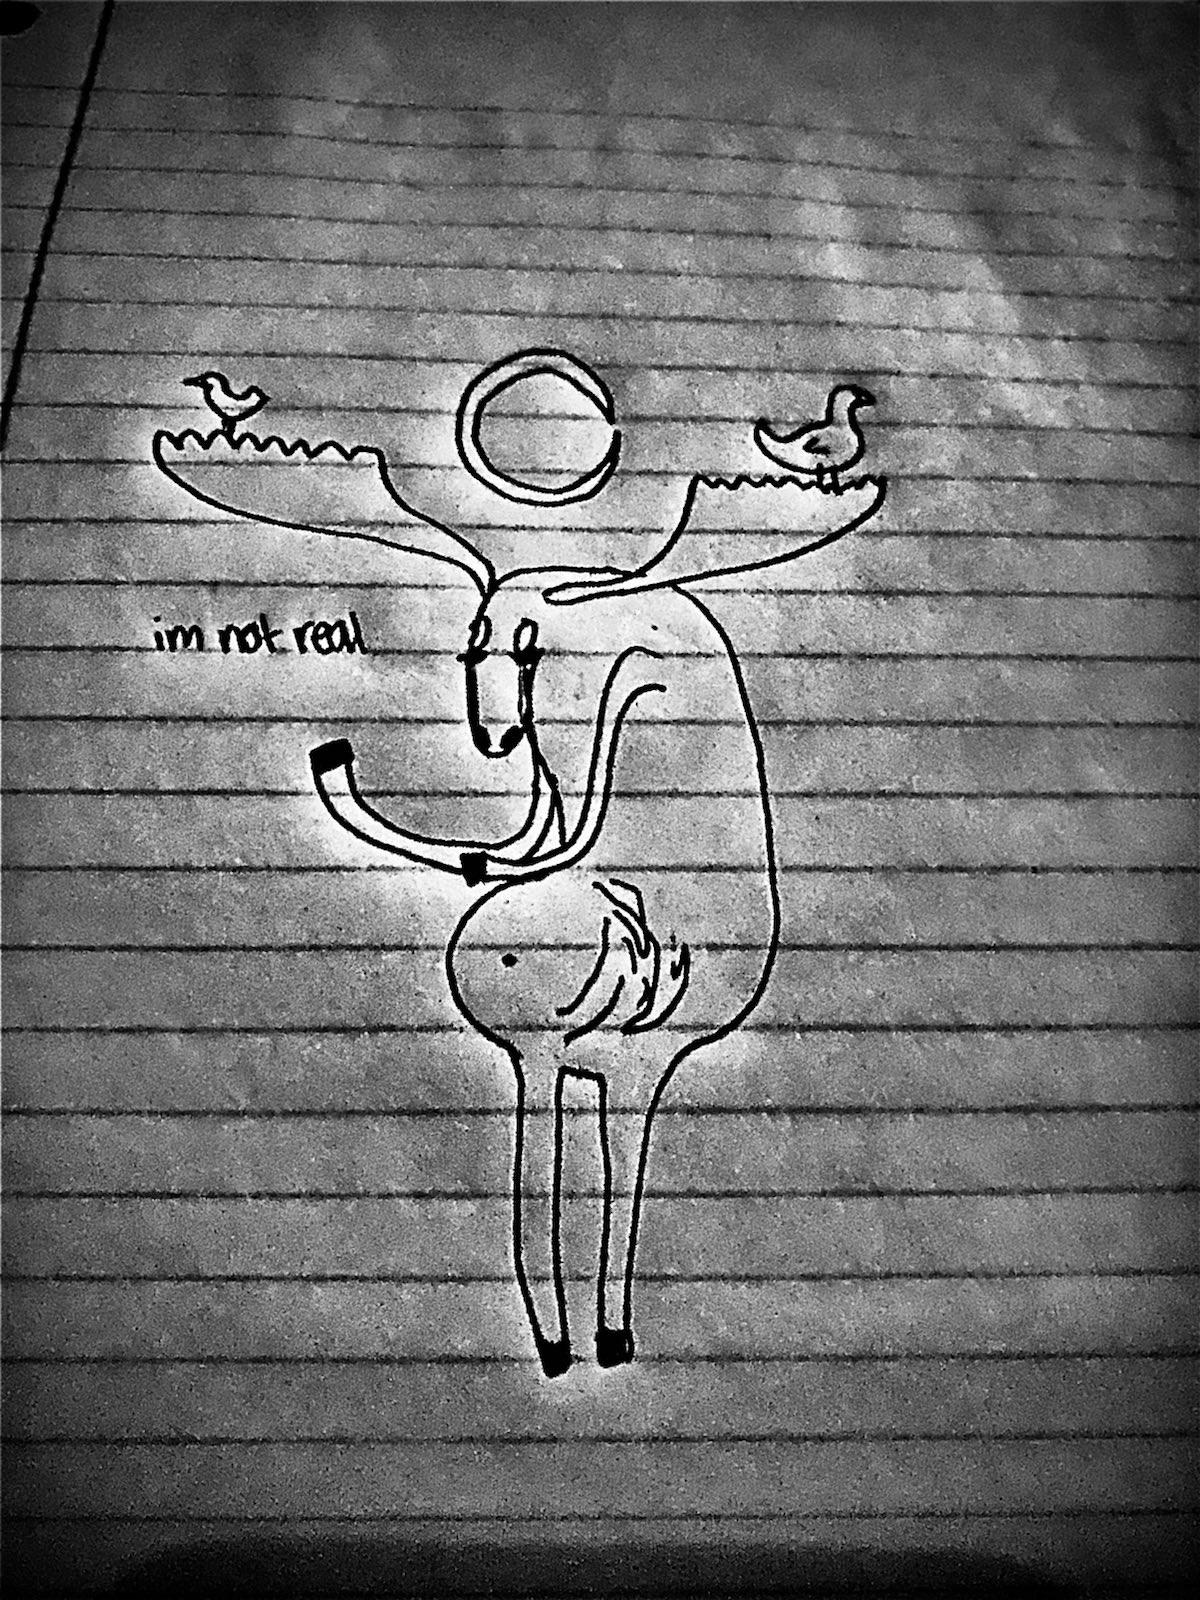 im not real